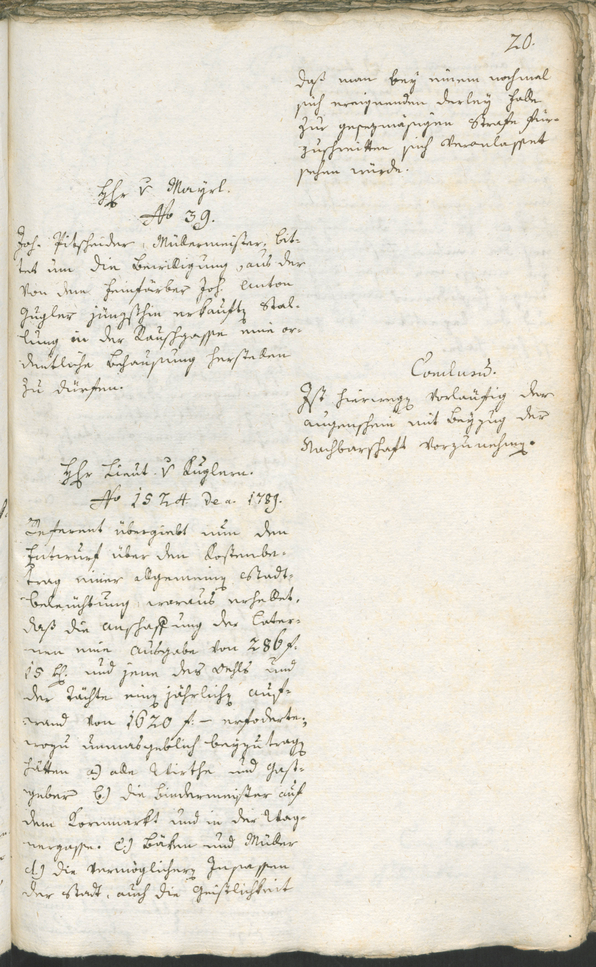 20.
daß man bey einem nochmal
sich ereignenden derley Falle
zur gesezmäsigen Strafe für-
zuschreitten sich veranlasset
sehen würde.
Hhr v Mayrl.
No 39.
Joh. Pitscheider, Müllermeister, bit-
tet um die Bewilligung, aus der
von dem Heinfärber Joh. Anton
Gugler jüngsthin erkauften Stal-
lung in der Rauschgasse eine or-
dentliche Behausung herstellen
zu dürfen.
Conclusum.
Ist hierwegen vorläufig der
Augenschein mit Beyzug der
Nachbarschaft vorzunehmen.
Hhr Lieut. v Kuglern.
No 1524 de a. 1789.
Referent übergiebt nun den
Entwurf über den Kostenbe-
trag einer allgemeinen Stadt-
beleuchtung, woraus erhellet,
daß die Anschaffung der Later-
nen eine Ausgabe von 286 f.
15 kr. und jene des Oehls und
der Tächte einen jährlichen Auf-
wand von 1620 f. – erfoderte,
wozu unmasgeblich beyzutragen
hätten a) alle Wirthe und Gast-
geber b) die Bindermeister auf
dem Kornmarkt und in der Wag-
nergasse. c) Bäken und Müller
d) die vermöglichern Insassen
der Stadt, auch die Geistlichkeit